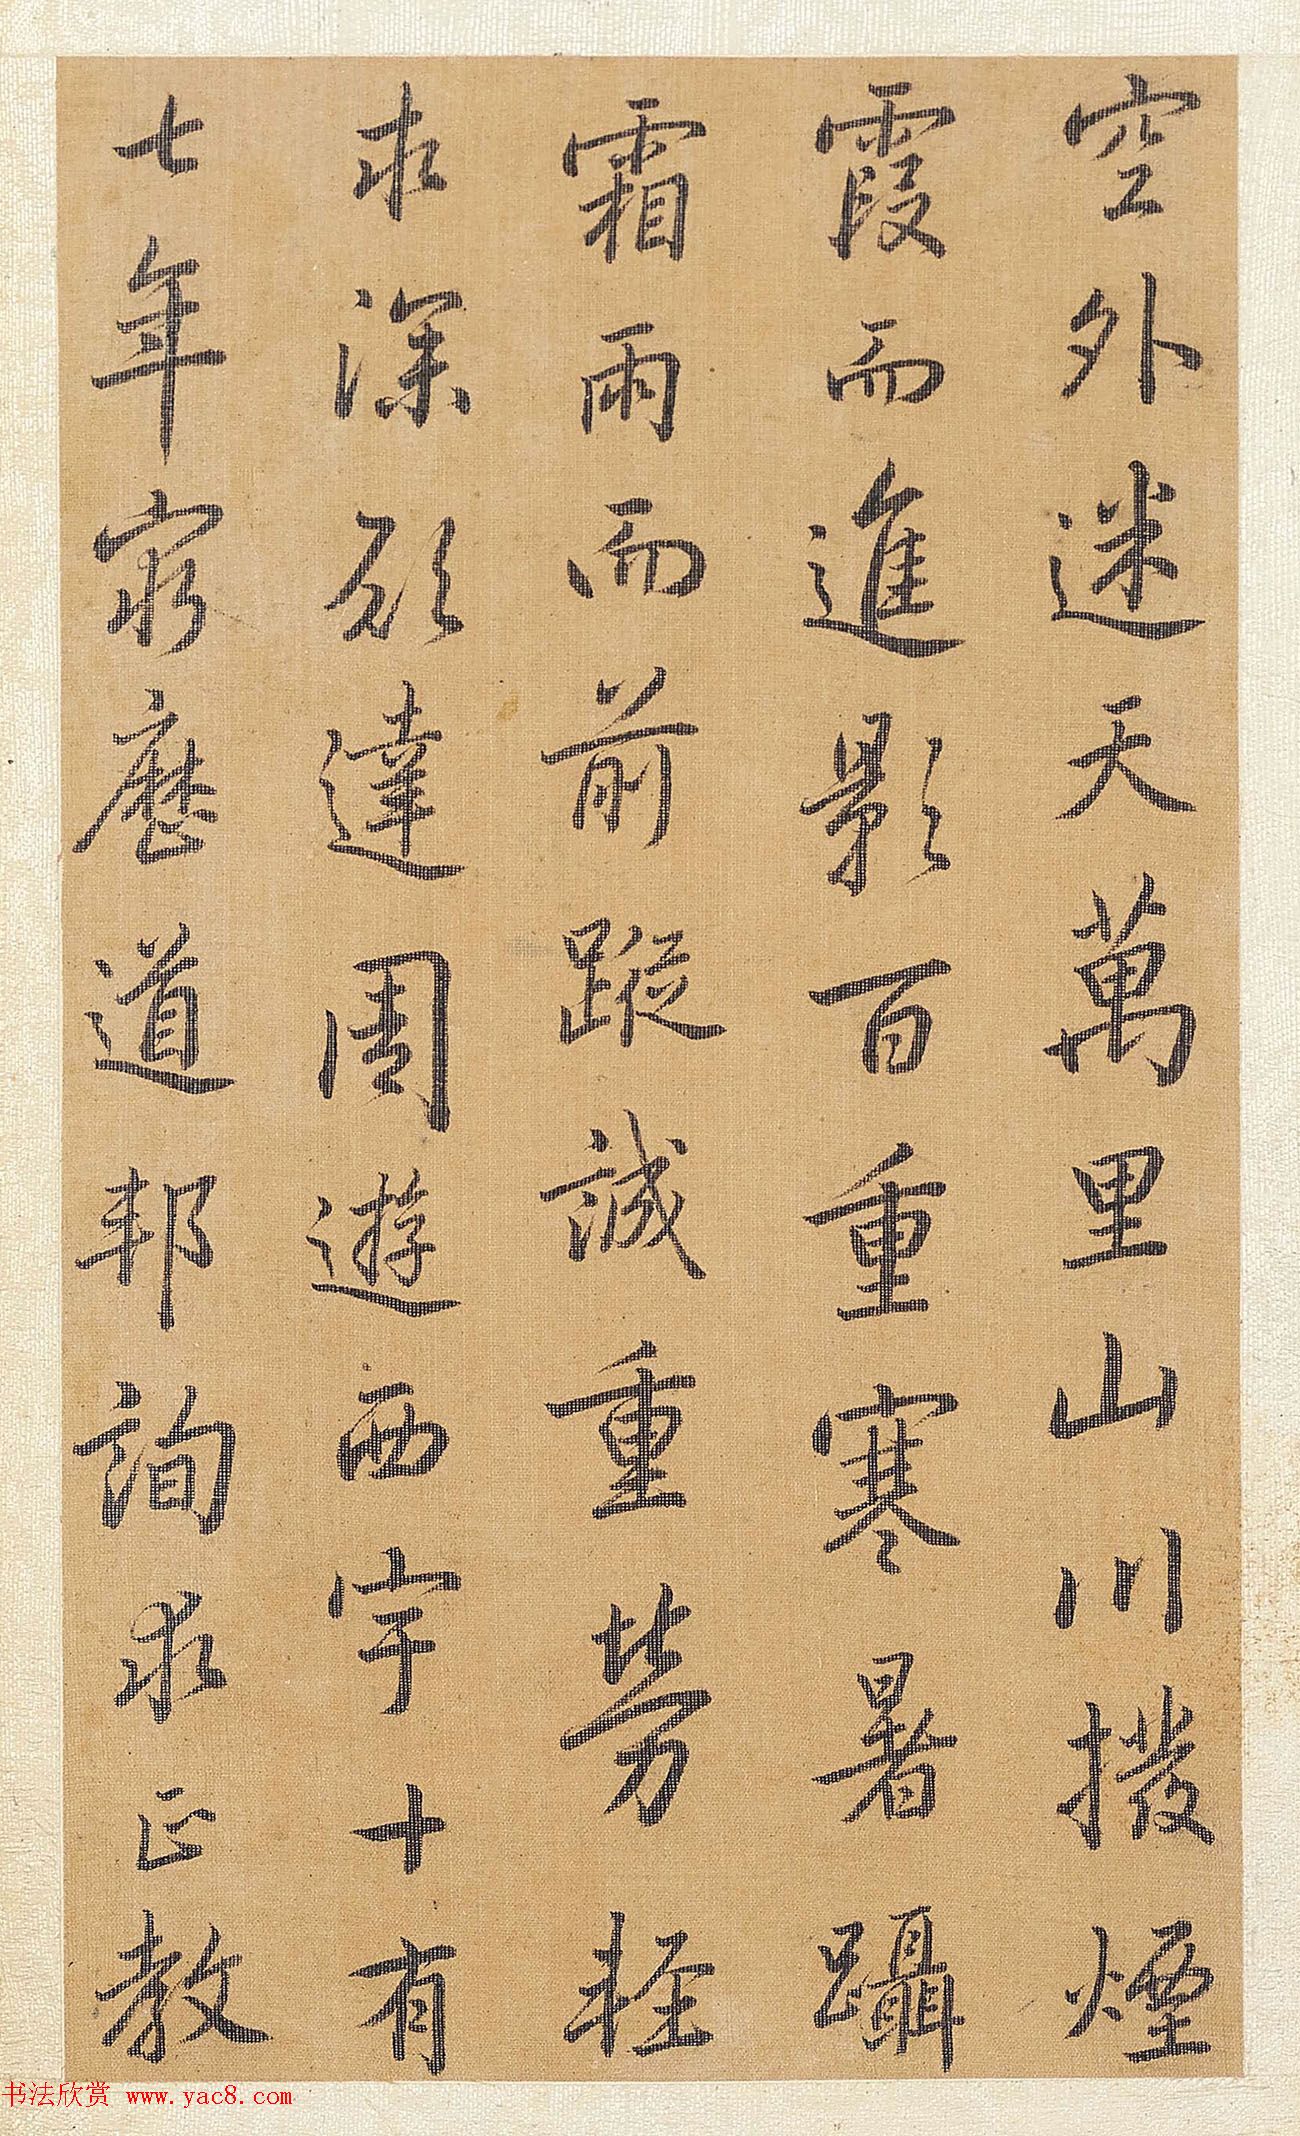 空外迷天萬里山川撥煙
霞而進影百重寒暑躡
霜雨而前蹤誠重勞輕
求深願達周遊西宇十有
七年窮歷道邦詢求正教
书法欣赏 www.yac8.com